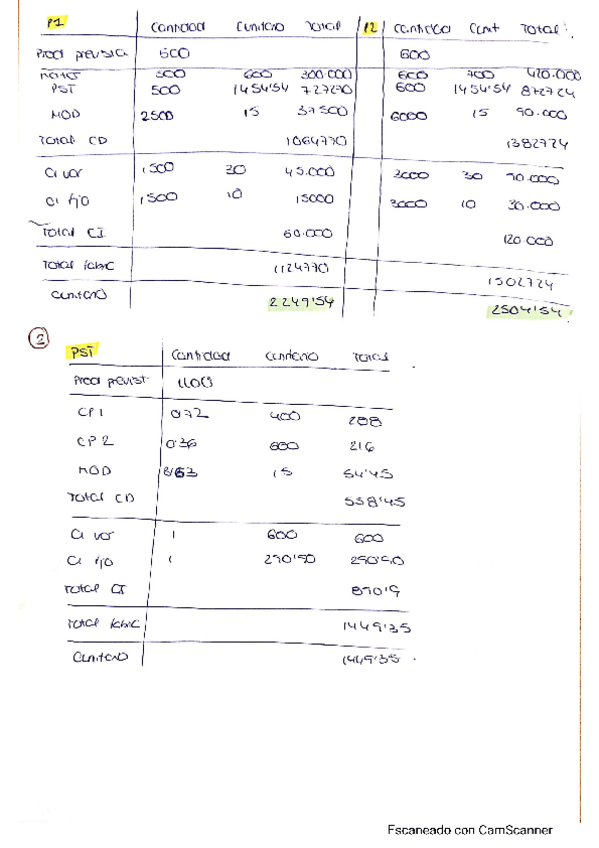 P1 Cantidad Cunitario Total P2 Cantidad Cunit Total
Prod prevista 500 600
500 600 300.000 600 700 420.000
PST 500 1454'54 727270 600 1454'54 872724
MOD 2500 15 37500 6000 15 90.000
Total CD 1064770 1382724
CI var 1500 30 45.000 3000 30 90.000
CI fijo 1500 10 15000 3000 10 30.000
Total CI 60.000 120.000
Total fabric 1124770 1502724
Cunitario 2249'54 2504'54
2
PST Cantidad Cunitario Total
Prod previst 1100
CP1 0'72 400 288
CP2 0'36 600 216
MOD 3'63 15 54'45
Total CD 558'45
CI var 1 600 600
CI fijo 1 290'90
Total CI 890'9
Total fabric 1449'35
Cunitario 1449'35
Escaneado con CamScanner